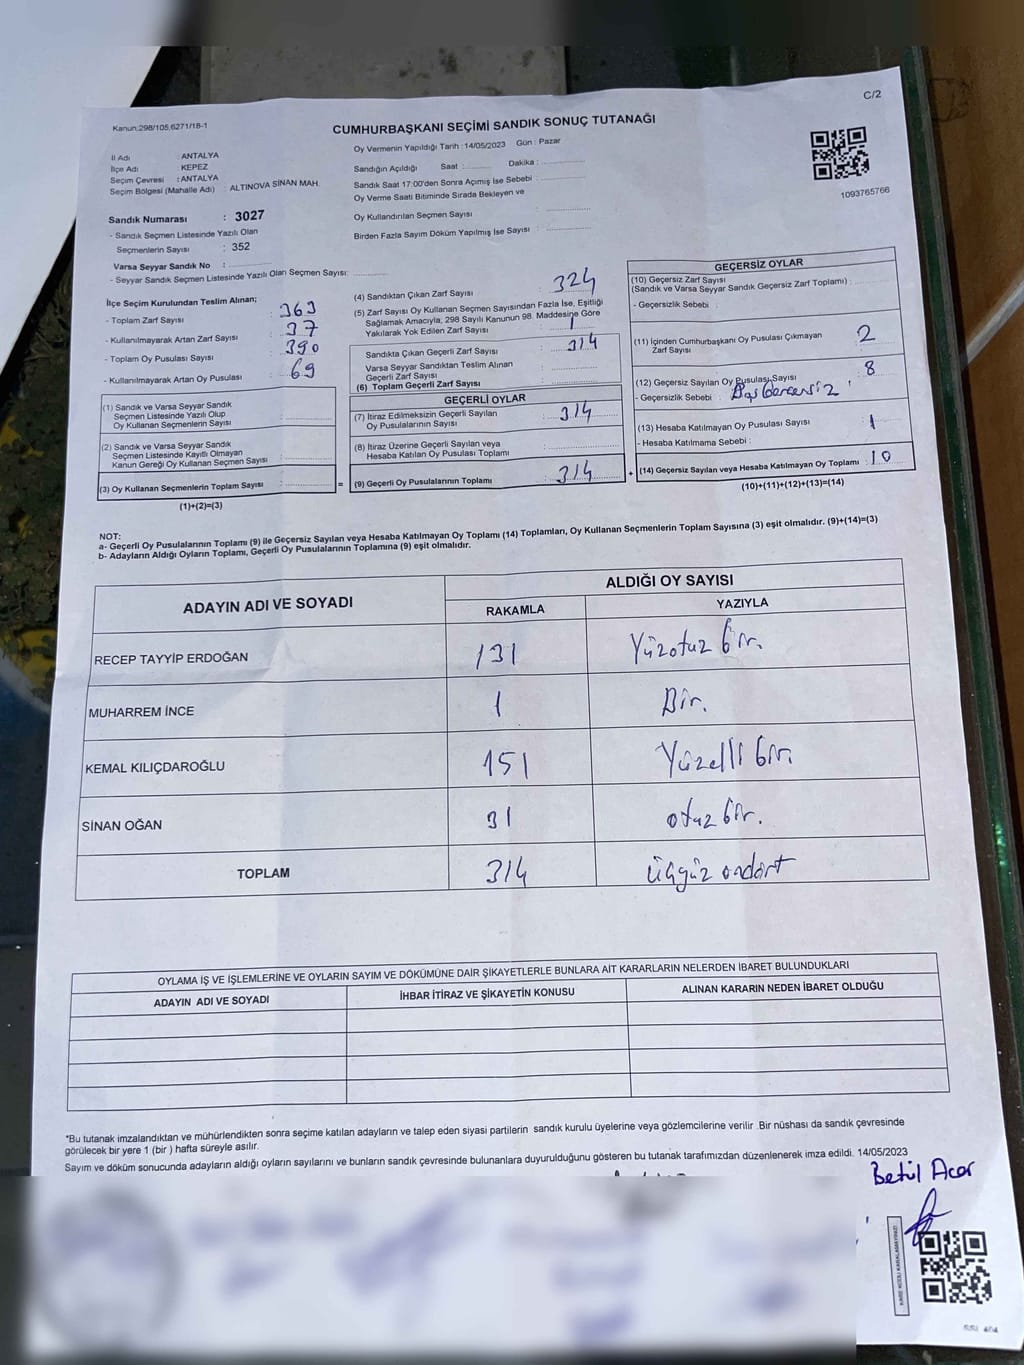 C/2
Kanun:298/105,6271/18-1
CUMHURBAŞKANI SEÇİMİ SANDIK SONUÇ TUTANAĞI
İl Adı : ANTALYA
İlçe Adı : KEPEZ
Seçim Çevresi : ANTALYA
Seçim Bölgesi (Mahalle Adı) : ALTINOVA SİNAN MAH.
Sandık Numarası : 3027
- Sandık Seçmen Listesinde Yazılı Olan
Seçmenlerin Sayısı : 352
Varsa Seyyar Sandık No :
- Seyyar Sandık Seçmen Listesinde Yazılı Olan Seçmen Sayısı:
Oy Vermenin Yapıldığı Tarih :14/05/2023 Gün : Pazar
Sandığın Açıldığı Saat : Dakika :
Sandık Saat 17:00'den Sonra Açımış İse Sebebi :
Oy Verme Saati Bitiminde Sırada Bekleyen ve
Oy Kullandırılan Seçmen Sayısı :
Birden Fazla Sayım Döküm Yapılmış İse Sayısı :
1093765766
İlçe Seçim Kurulundan Teslim Alınan;
- Toplam Zarf Sayısı : 363
- Kullanılmayarak Artan Zarf Sayısı : 37
- Toplam Oy Pusulası Sayısı : 390
- Kullanılmayarak Artan Oy Pusulası : 69
(1) Sandık ve Varsa Seyyar Sandık
Seçmen Listesinde Yazılı Olup
Oy Kullanan Seçmenlerin Sayısı :
(2) Sandık ve Varsa Seyyar Sandık
Seçmen Listesinde Kayıtlı Olmayan
Kanun Gereği Oy Kullanan Seçmen Sayısı :
(3) Oy Kullanan Seçmenlerin Toplam Sayısı :
(1)+(2)=(3)
(4) Sandıktan Çıkan Zarf Sayısı : 324
(5) Zarf Sayısı Oy Kullanan Seçmen Sayısından Fazla İse, Eşitliği
Sağlamak Amacıyla, 298 Sayılı Kanunun 98. Maddesine Göre
Yakılarak Yok Edilen Zarf Sayısı : 1
Sandıkta Çıkan Geçerli Zarf Sayısı : 314
Varsa Seyyar Sandıktan Teslim Alınan
Geçerli Zarf Sayısı :
(6) Toplam Geçerli Zarf Sayısı :
GEÇERLİ OYLAR
(7) İtiraz Edilmeksizin Geçerli Sayılan
Oy Pusulalarının Sayısı : 314
(8) İtiraz Üzerine Geçerli Sayılan veya
Hesaba Katılan Oy Pusulası Toplamı :
= (9) Geçerli Oy Pusulalarının Toplamı : 314
GEÇERSİZ OYLAR
(10) Geçersiz Zarf Sayısı
(Sandık ve Varsa Seyyar Sandık Geçersiz Zarf Toplamı) :
- Geçersizlik Sebebi :
(11) İçinden Cumhurbaşkanı Oy Pusulası Çıkmayan
Zarf Sayısı : 2
(12) Geçersiz Sayılan Oy Pusulası Sayısı : 8
- Geçersizlik Sebebi :
(13) Hesaba Katılmayan Oy Pusulası Sayısı : 1
- Hesaba Katılmama Sebebi :
+ (14) Geçersiz Sayılan veya Hesaba Katılmayan Oy Toplamı : 10
(10)+(11)+(12)+(13)=(14)
NOT:
a- Geçerli Oy Pusulalarının Toplamı (9) ile Geçersiz Sayılan veya Hesaba Katılmayan Oy Toplamı (14) Toplamları, Oy Kullanan Seçmenlerin Toplam Sayısına (3) eşit olmalıdır. (9)+(14)=(3)
b- Adayların Aldığı Oyların Toplamı, Geçerli Oy Pusulalarının Toplamına (9) eşit olmalıdır.
ADAYIN ADI VE SOYADI ALDIĞI OY SAYISI
RAKAMLA YAZIYLA
RECEP TAYYİP ERDOĞAN 131 Yüzotuz bir.
MUHARREM İNCE 1 Bir.
KEMAL KILIÇDAROĞLU 151 Yüzelli bir.
SİNAN OĞAN 31 otuz bir.
TOPLAM 314 üçyüz ondört
OYLAMA İŞ VE İŞLEMLERİNE VE OYLARIN SAYIM VE DÖKÜMÜNE DAİR ŞİKAYETLERLE BUNLARA AİT KARARLARIN NELERDEN İBARET BULUNDUKLARI
ADAYIN ADI VE SOYADI İHBAR İTİRAZ VE ŞİKAYETİN KONUSU ALINAN KARARIN NEDEN İBARET OLDUĞU
*Bu tutanak imzalandıktan ve mühürlendikten sonra seçime katılan adayların ve talep eden siyasi partilerin sandık kurulu üyelerine veya gözlemcilerine verilir .Bir nüshası da sandık çevresinde
görülecek bir yere 1 (bir ) hafta süreyle asılır.
Sayım ve döküm sonucunda adayların aldığı oyların sayılarını ve bunların sandık çevresinde bulunanlara duyurulduğunu gösteren bu tutanak tarafımızdan düzenlenerek imza edildi. 14/05/2023
Betül Acar